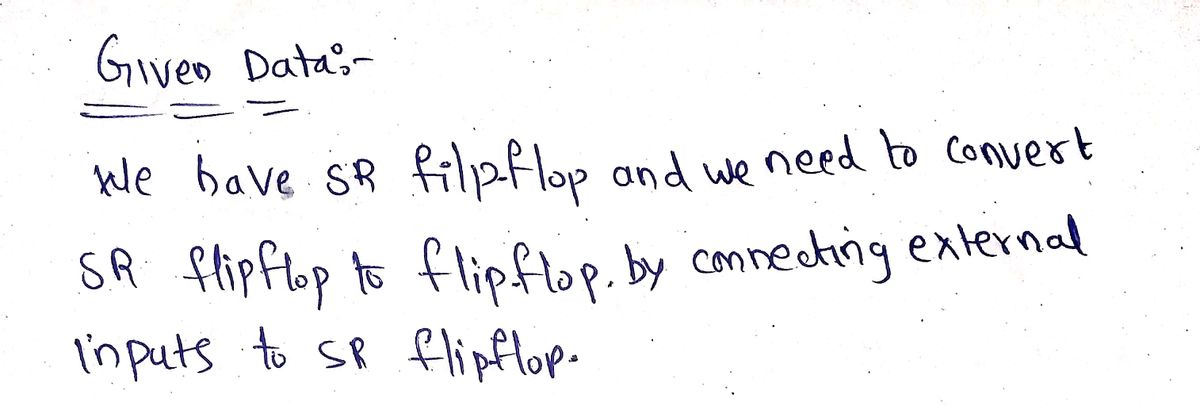 Given Data:-
We have SR filpflop and we need to convert
SR flipflop to flipflop. by connecting external
inputs to SR flipflop.